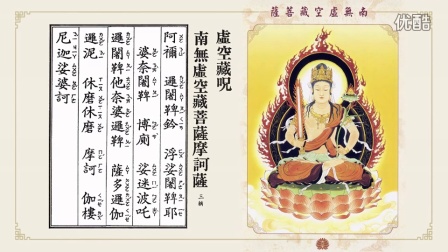 南無虛空藏菩薩
优酷
虛空藏咒
南無虛空藏菩薩摩訶薩 三稱
阿禰 邏闍鞞鈴 浮娑闍鞞耶
婆奈闍鞞 博廁 娑迷波吒
邏闍鞞他奈婆邏鞞 薩多邏伽
邏泥 休磨休磨 摩訶 伽樓
尼迦娑婆訶